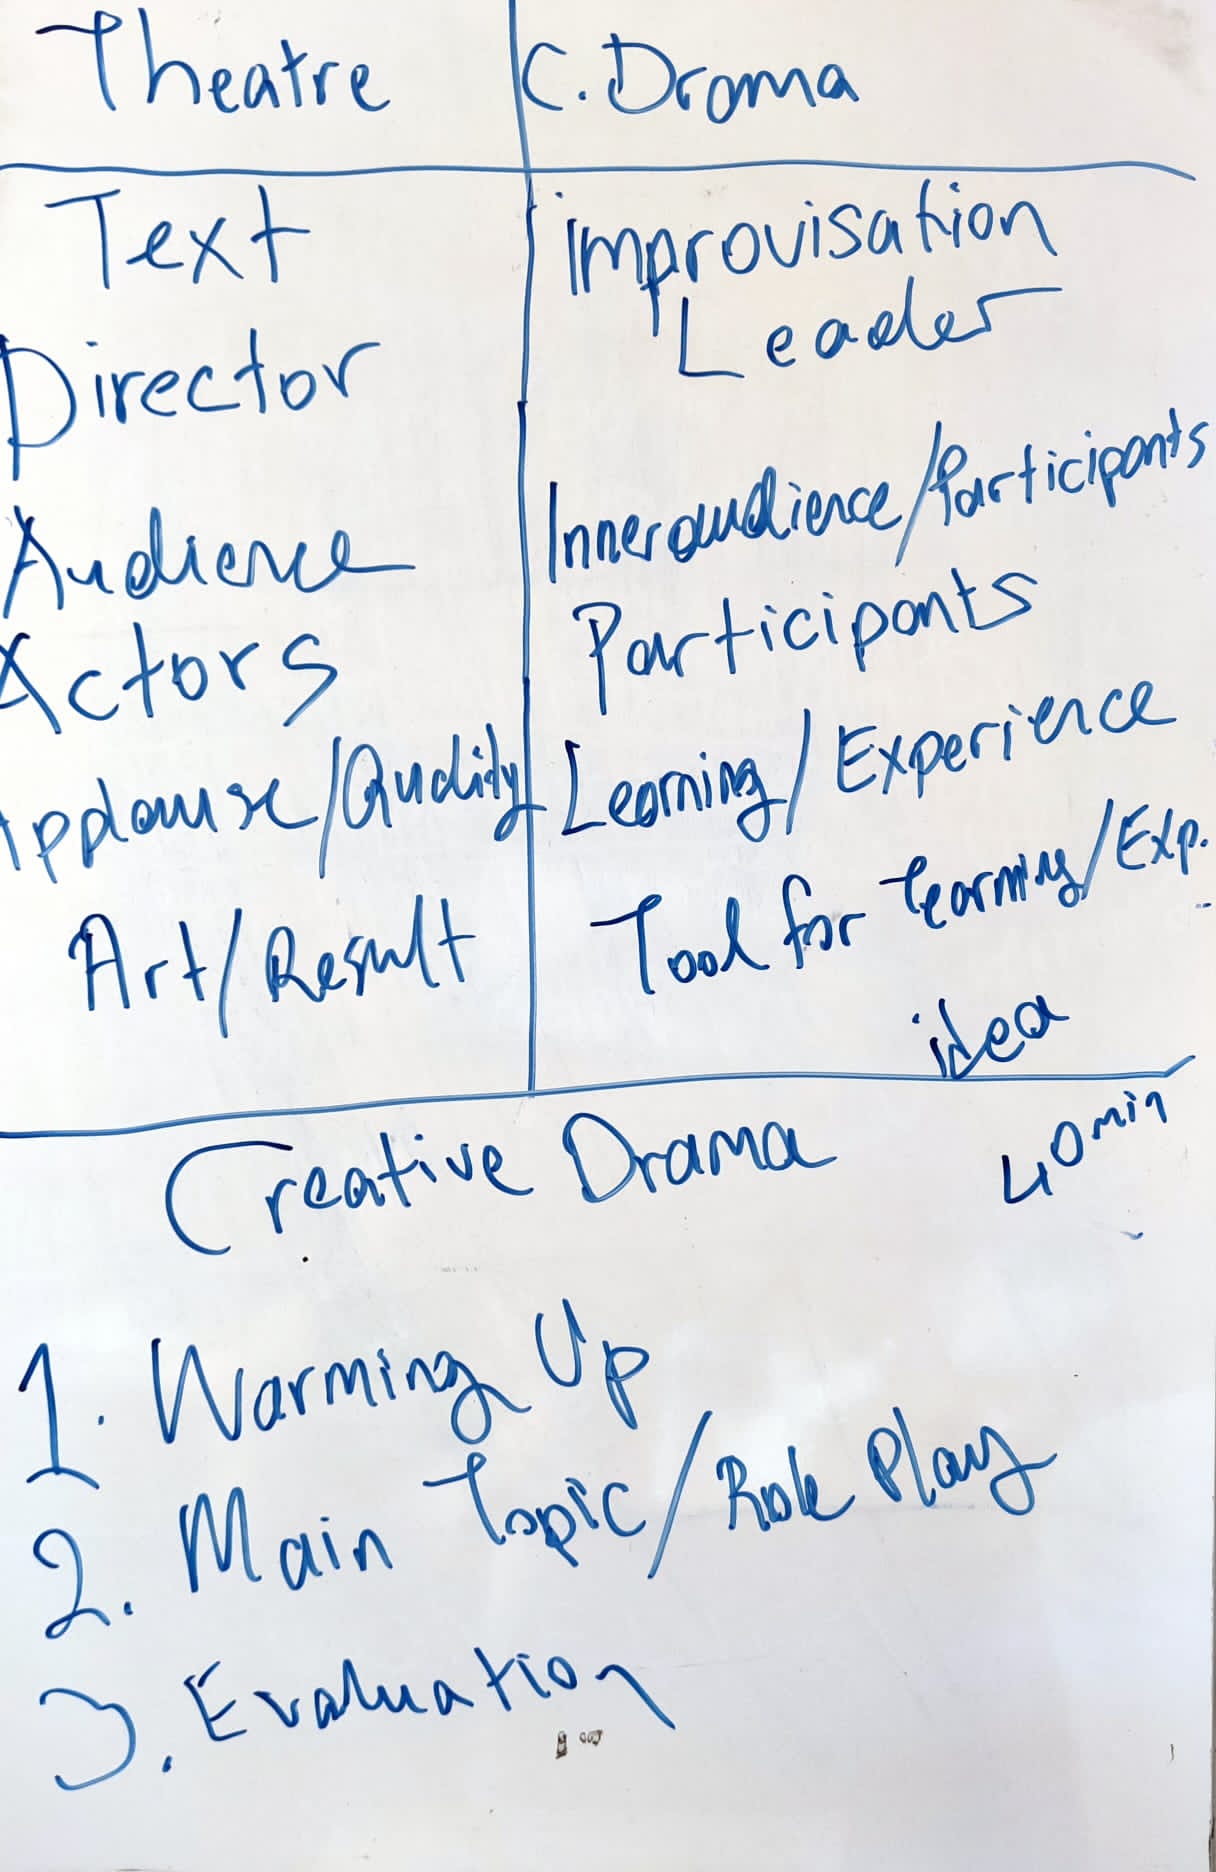 Theatre C. Drama
Text improvisation
Director Leader
Audience Inneraudience/Participants
Actors Participants
Applause/Quality Learning/Experience
Art/Result Tool for learning/Exp.
idea
Creative Drama 40 min
1. Warming Up
2. Main Topic/Role Play
3. Evaluation